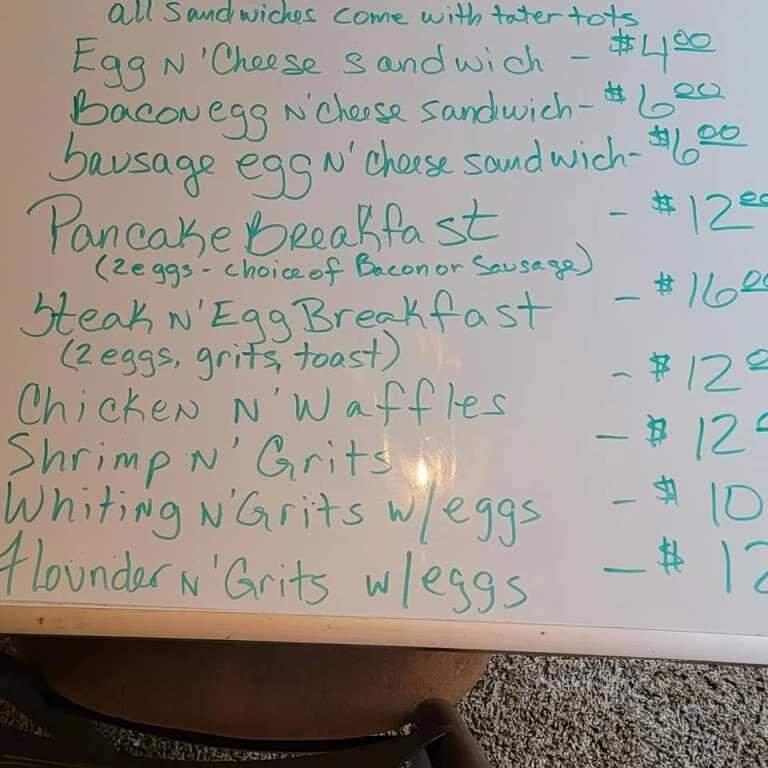 all Sandwiches come with tater tots
Egg N' Cheese sandwich - $4.00
Bacon egg N' cheese sandwich - $6.00
Sausage egg N' cheese sandwich - $6.00
Pancake Breakfast - $12.00
(2 eggs - choice of Bacon or Sausage)
Steak N' Egg Breakfast - $16.00
(2 eggs, grits, toast)
Chicken N' Waffles - $12.0
Shrimp N' Grits - $12
Whiting N' Grits w/eggs - $10
Flounder N' Grits w/eggs - $12